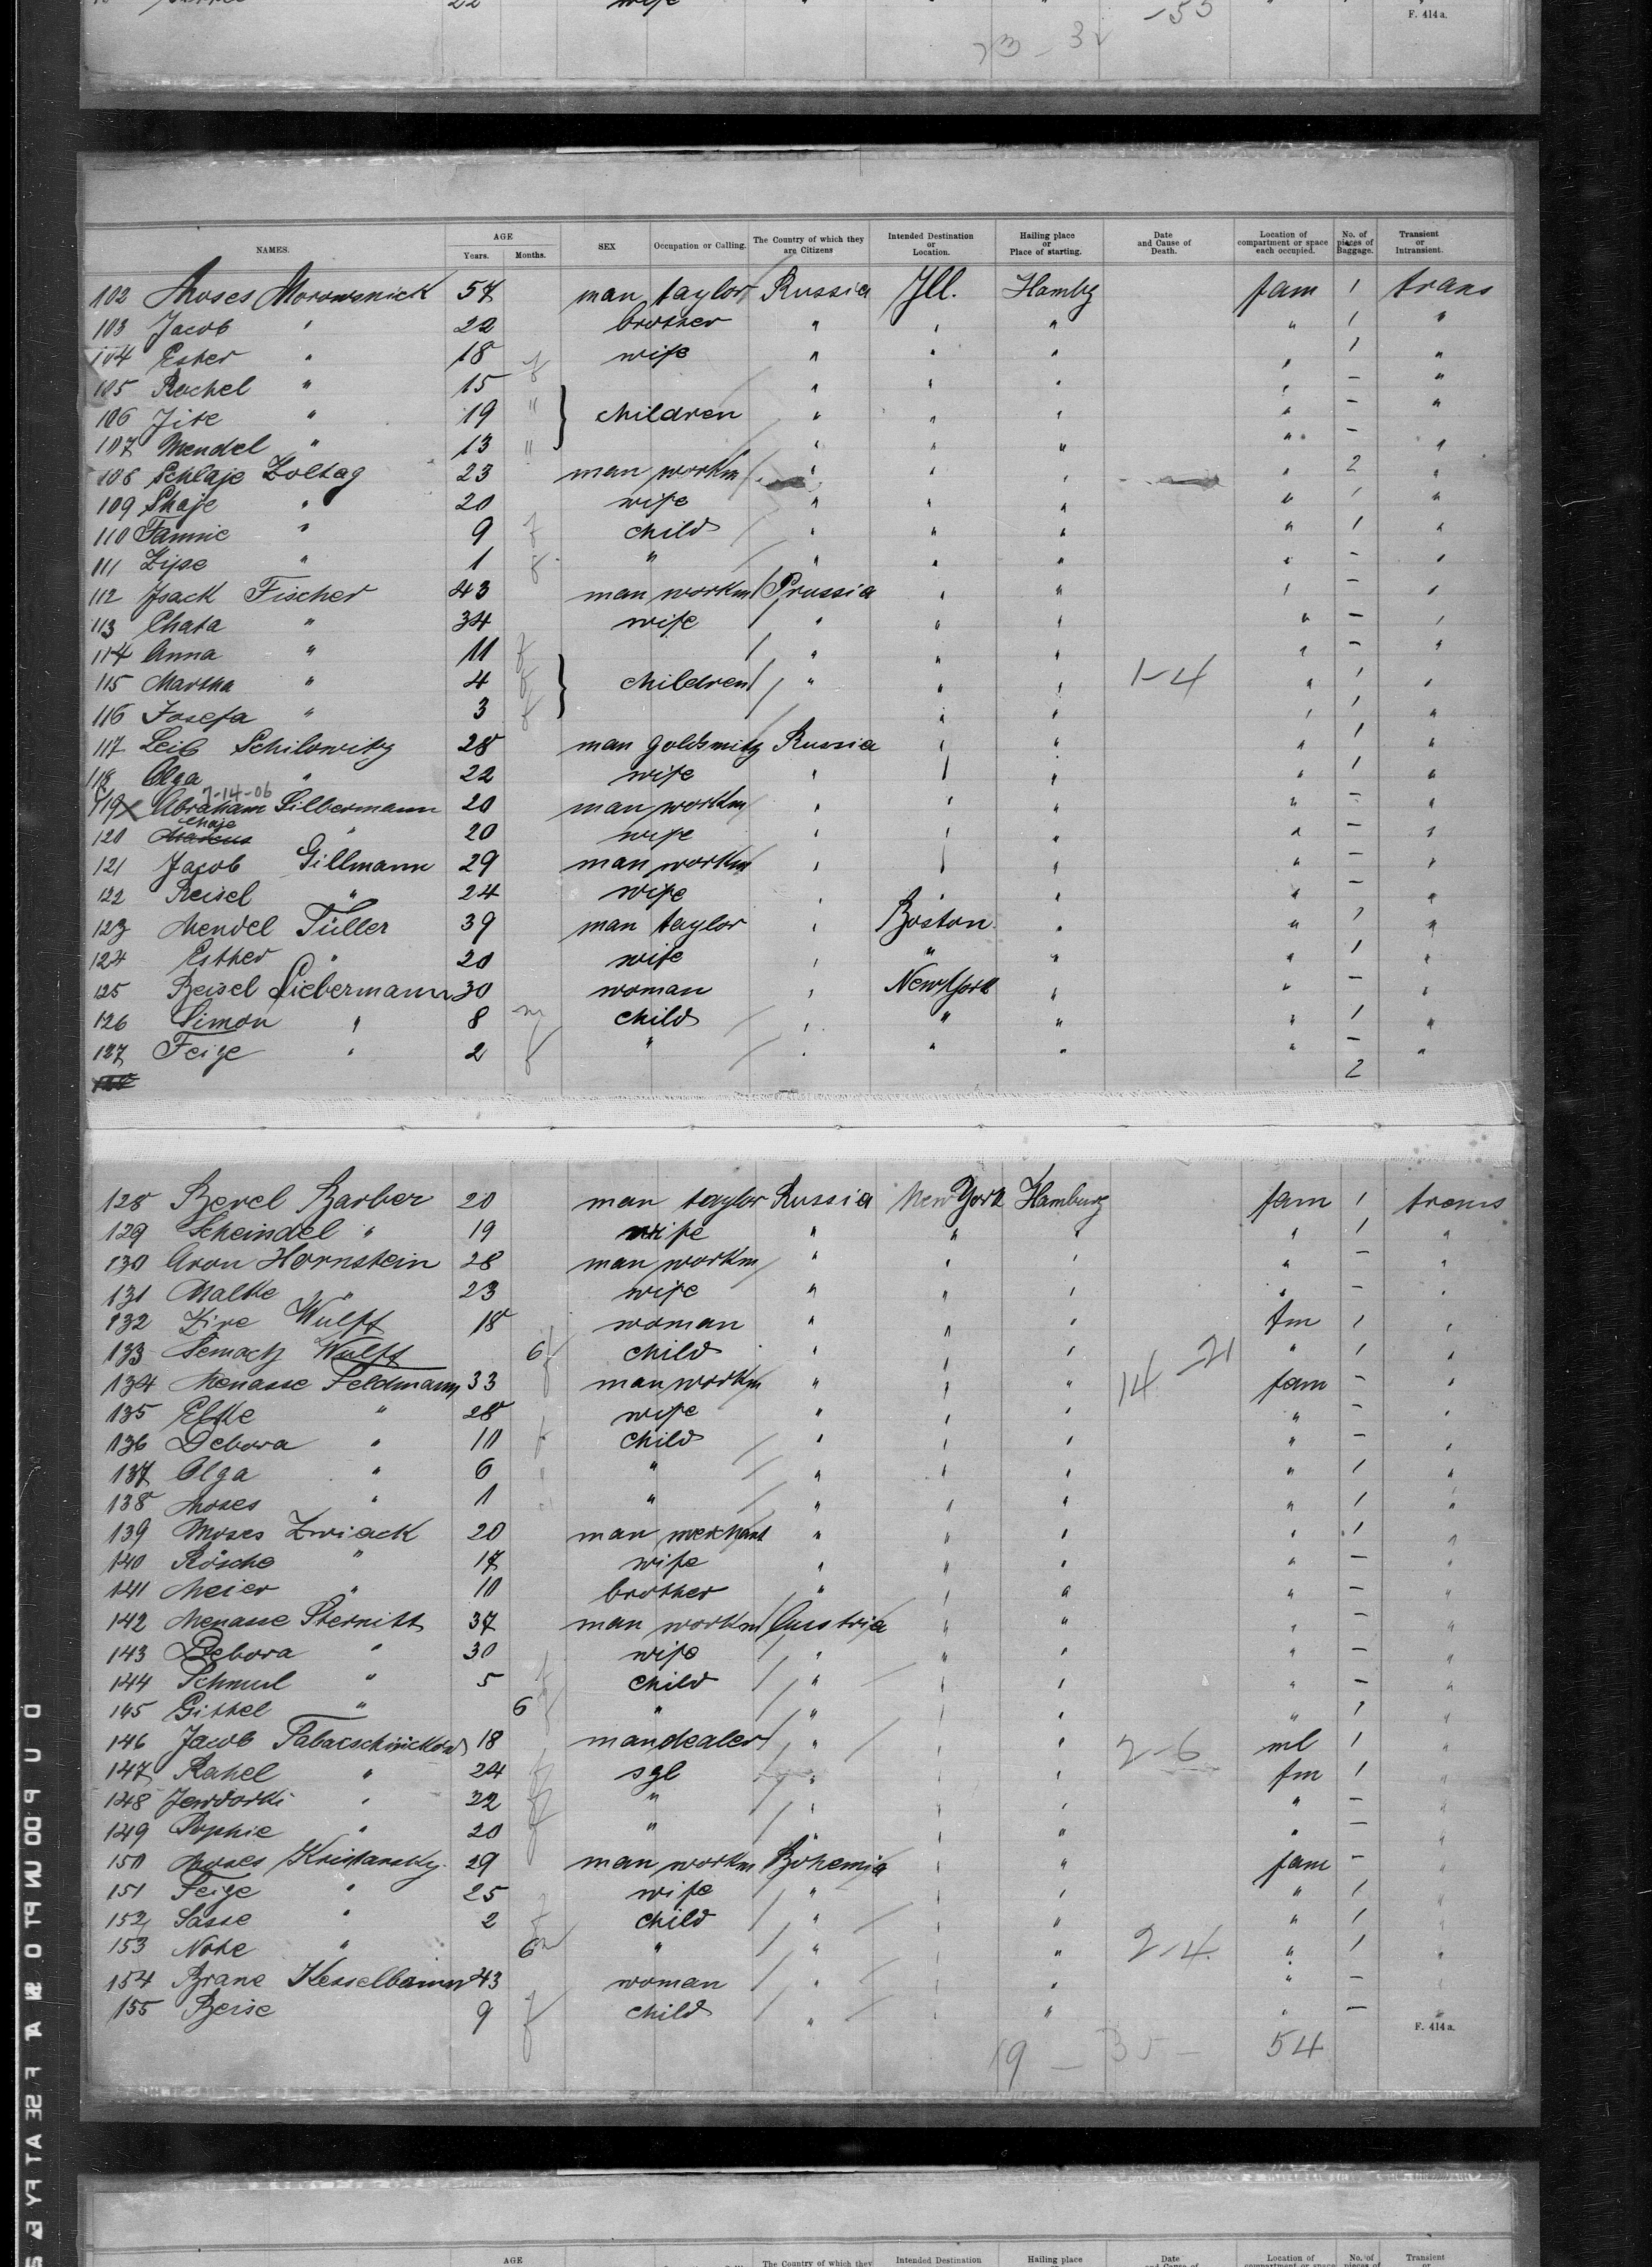 22 wife
73 - 32 - 55
F. 414a.
NAMES. AGE Years. Months. SEX Occupation or Calling. The Country of which they are Citizens Intended Destination or Location. Hailing place or Place of starting. Date and Cause of Death. Location of compartment or space each occupied. No. of pieces of Baggage. Transient or Intransient.
102 Moses Morowsnick 57 man taylor Russia Ill. Hambg fam 1 trans
103 Jacob " 22 brother " " " " 1 "
104 Ester " 18 wife " " " " 1 "
105 Rachel " 15 f " " " " - "
106 Jite " 19 " children " " " " - "
107 Mendel " 13 " " " " " - "
108 Schlaje Zoltag 23 man workm " " " " 2 "
109 Shaje " 20 wife " " " " 1 "
110 Fannie " 9 f child " " " " 1 "
111 Zipe " 1 f " " " " " - "
112 Isack Fischer 43 man workm Prussia " " " - "
113 Chata " 34 wife " " " " - "
114 Anna " 11 f " " " " - "
115 Martha " 4 f children " " " 1-4 " 1 "
116 Josefa " 3 f " " " " 1 "
117 Leib Schilowitz 28 man goldsmitz Russia " " " 1 "
118 Olga " 22 wife " " " " 1 "
7-14-06
119 x Abraham Silbermann 20 man workm " " " " - "
120 Chaje " 20 wife " " " " - "
121 Jacob Gillmann 29 man workm " " " " - "
122 Reisel " 24 wife " " " " - "
123 Mendel Füller 39 man taylor " Boston " " 1 "
124 Esther " 20 wife " " " " 1 "
125 Beisel Liebermann 30 woman " New York " " - "
126 Simon " 8 m child " " " " 1 "
127 Feige " 2 f " " " " " - "
2
128 Berel Barber 20 man taylor Russia New York Hamburg fam 1 trans
129 Scheindel " 19 wife " " " " 1 "
130 Aron Hornstein 28 man workm " " " " - "
131 Malke " 23 wife " " " " - "
132 Zire Wulff 18 woman " " " fm 1 "
133 Semach Wulff 6 f child " " " " 1 "
134 Menasse Feldmann 33 man workm " " " 14-21 fam - "
135 Elke " 28 wife " " " " - "
136 Debora " 10 f child " " " " - "
137 Olga " 6 " " " " " " 1 "
138 Moses " 1 " " " " " 1 "
139 Moses Zwiack 20 man merchant " " " " 1 "
140 Rösche " 17 wife " " " " - "
141 Meier " 10 brother " " " " - "
142 Menasse Sternitt 37 man workm Austria " " " - "
143 Debora " 30 wife " " " " - "
144 Schmul " 5 f child " " " " - "
145 Gittel " 6 f " " " " " 1 "
146 Jacob 18 man dealer " " " 2-6 ml 1 "
147 Rahel " 24 f sgl " " " fm 1 "
148 " 22 f " " " " " - "
149 Sophie " 20 f " " " " " - "
150 Moses Kristansky 29 man workm Bohemia " " fam - "
151 Feige " 25 wife " " " " 1 "
152 Sasse " 2 f child " " " " 1 "
153 Note " 6 m " " " " 2-4 " 1 "
154 Brane Kesselbaum 43 woman " " " " - "
155 Beise 9 f child " " " " - "
F. 414a.
19 - 35 - 54
AGE The Country of which they Intended Destination Hailing place Date Location of No. of Transient